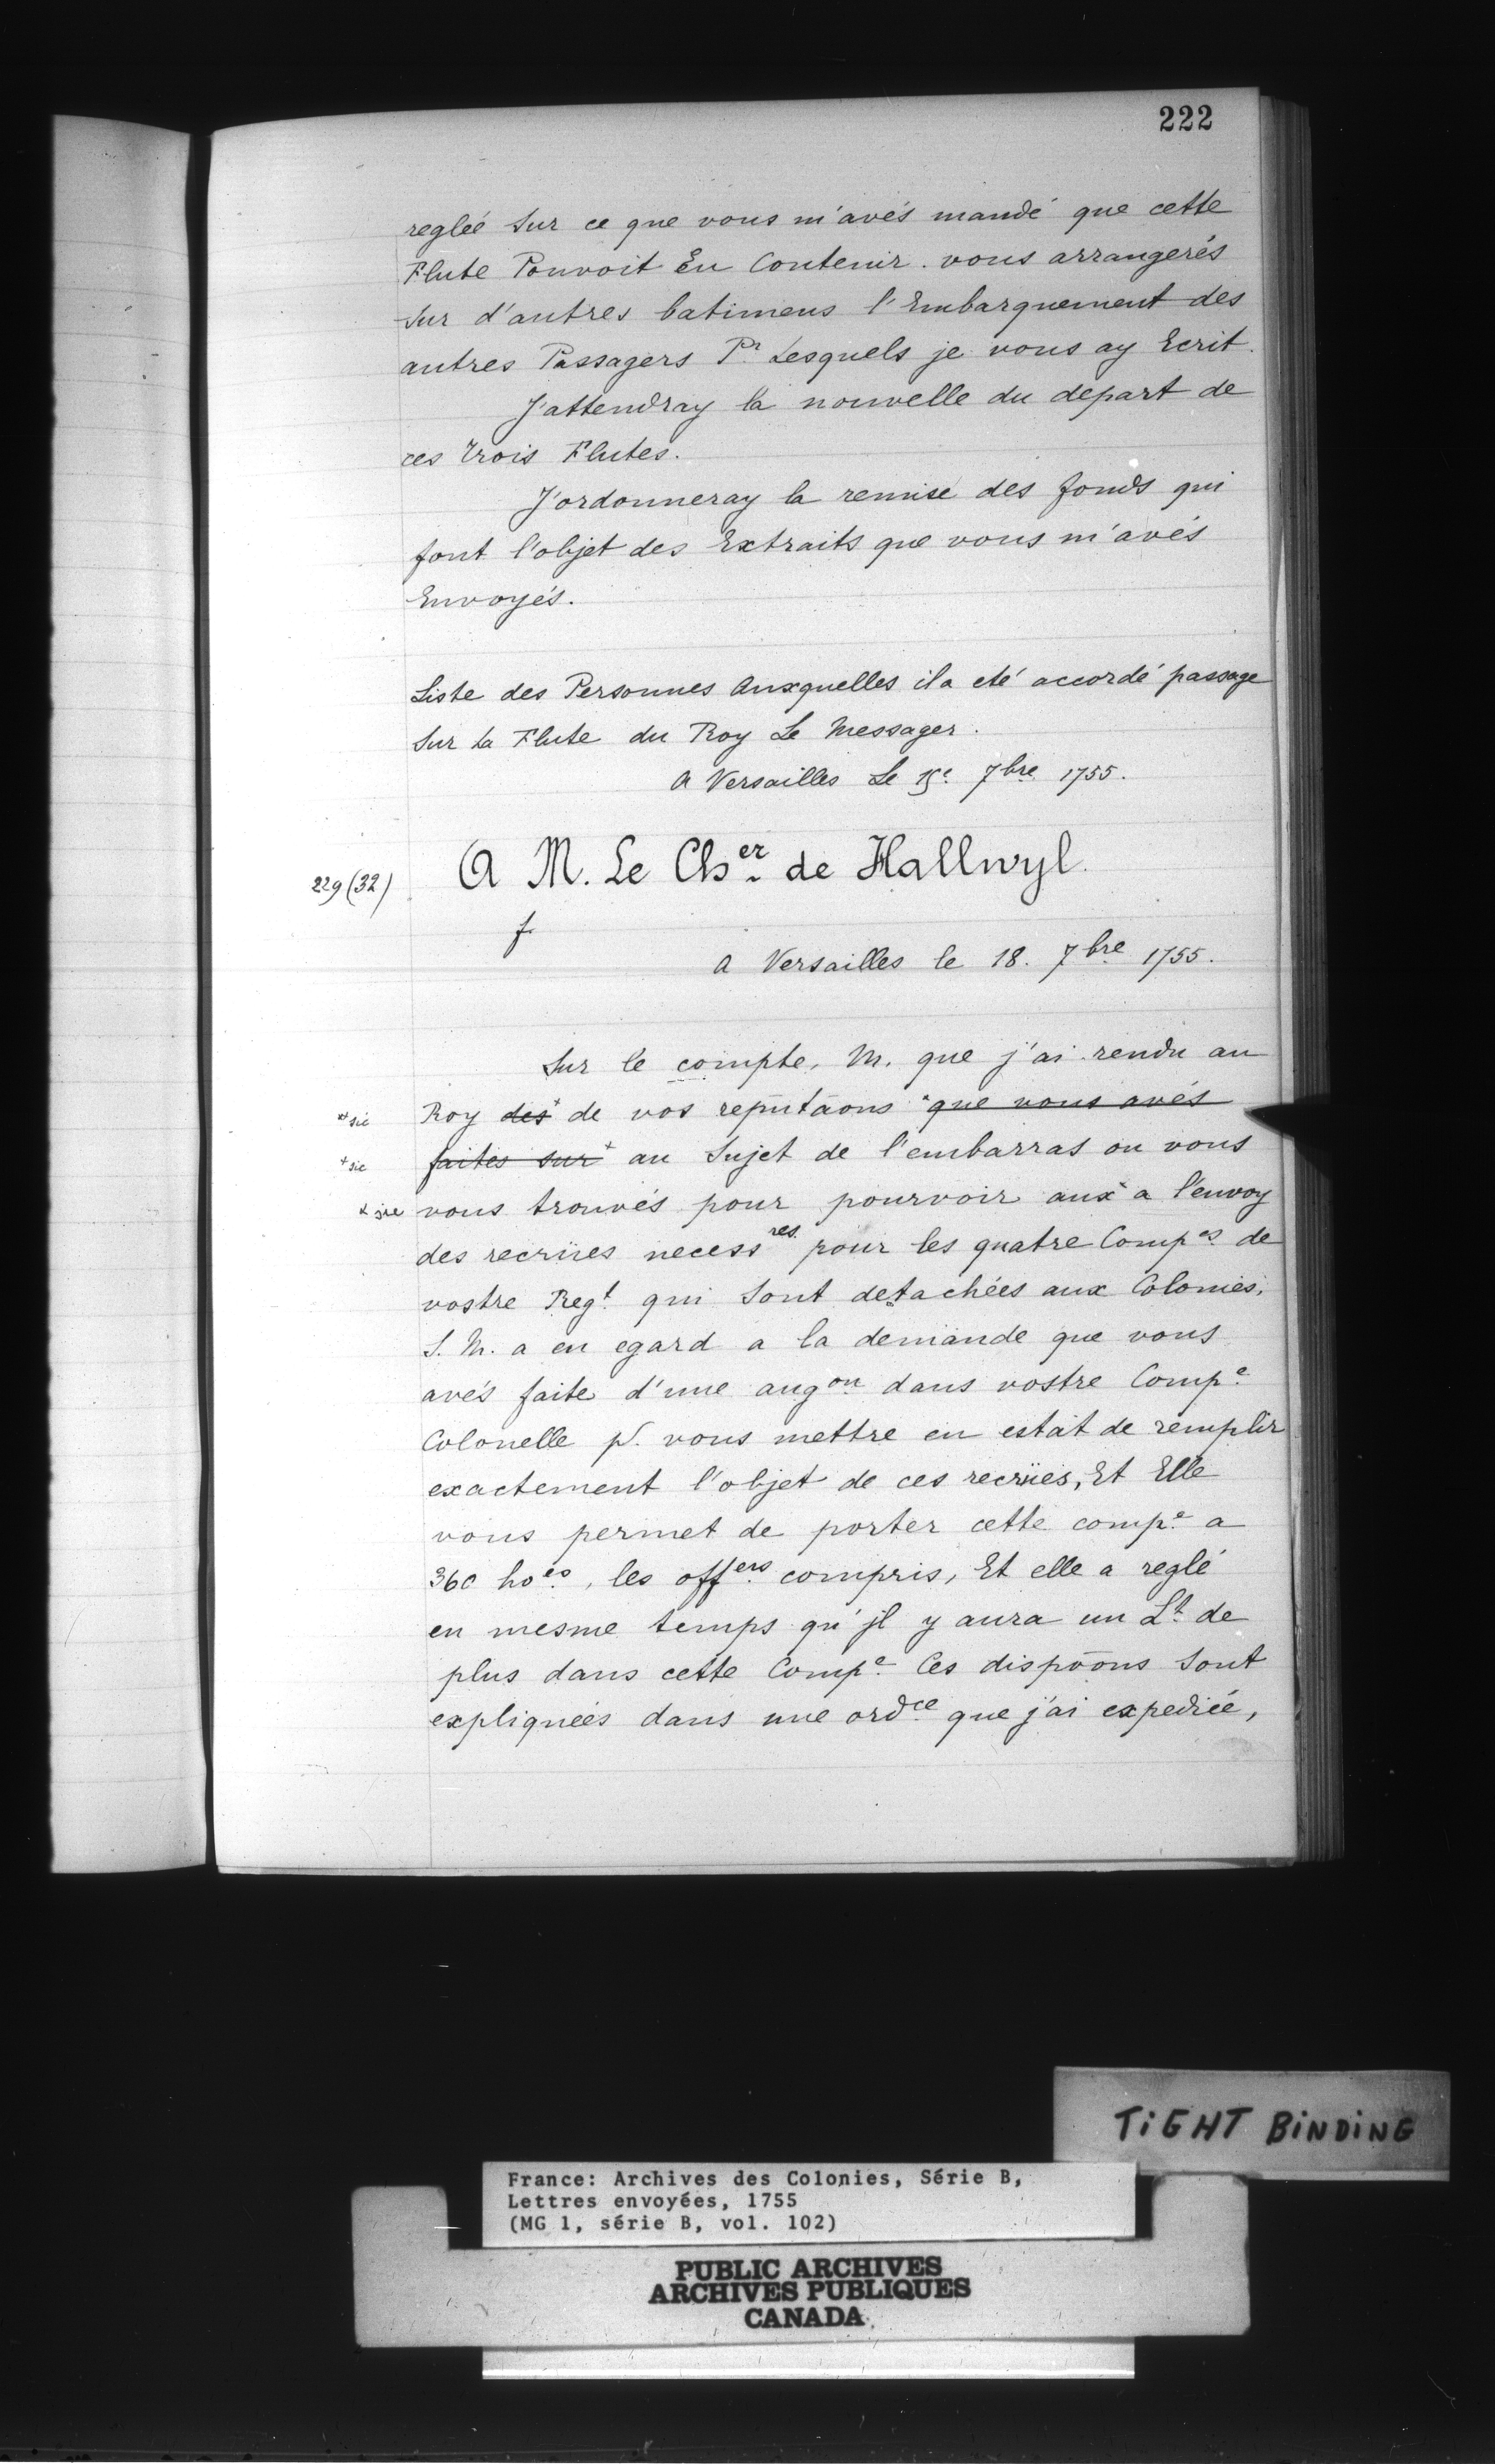 222
reglée sur ce que vous m'avés mandé que cette
Flute Pouvoit En Contenir. vous arrangerés
sur d'autres batimens l'Embarquement des
autres Passagers Pr. Lesquels je vous ay Ecrit.
J'attendray la nouvelle du depart de
ces trois Flutes.
J'ordonneray la remise des fonds qui
font l'objet des Extraits que vous m'avés
Envoyés.
Liste des Personnes Auxquelles il a eté accordé passage
sur La Flute du Roy Le Messager.
A Versailles Le 15e. 7bre 1755.
229 (32) A M. Le Cher. de Hallwyl.
f
A Versailles le 18. 7bre 1755.
Sur le compte, M. que j'ai rendu au
x+ sic Roy des+ de vos reputãons + que vous avés
+ sic faites sur+ au Sujet de l'embarras ou vous
x sic vous trouvés pour pourvoir aux+ a l'envoy
des recrües necessres. pour les quatre Compes de
vostre Regt. qui sont detachées aux Colonies,
S. M. a eu egard a la demande que vous
avés faite d'une augon dans vostre Compe.
Colonelle pr. vous mettre en estat de remplir
exactement l'objet de ces recrües, Et Elle
vous permet de porter cette compe. a
360 hoes., les offers. compris, Et elle a reglé
en mesme temps qu'jl y aura un Lt. de
plus dans cette Compe. Ces dispõons sont
expliquées dans une ordce. que j'ai expediée,
TiGHT BiNDiNG
France: Archives des Colonies, Série B,
Lettres envoyées, 1755
(MG 1, série B, vol. 102)
PUBLIC ARCHIVES
ARCHIVES PUBLIQUES
CANADA